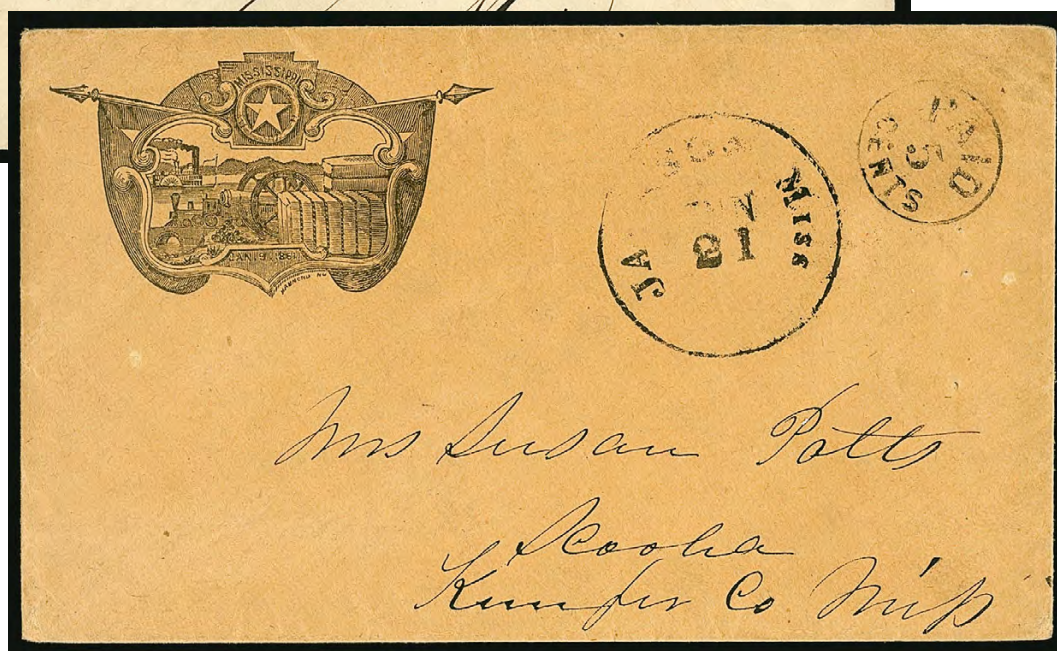 MISSISSIPPI
JAN 9. 1861
JA SON Miss
21
PAID
5
CENTS
Mrs Susan Potts
Scooba
Kemper Co Miss